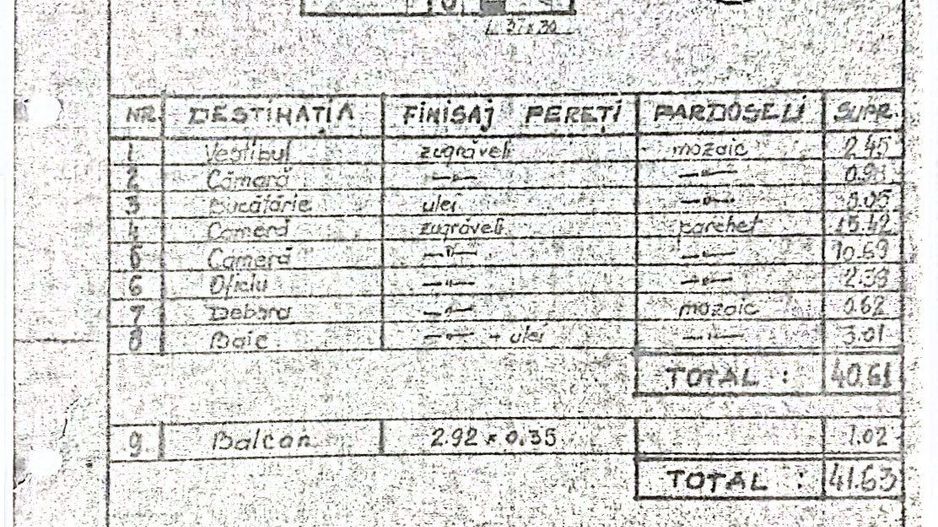 37x30
NR. DESTINAȚIA FINISAJ PEREȚI PARDOSELI SUPR.
1 Vestibul zugrăveli mozaic 2.45
2 Cămară —"— —"— 0.98
3 Bucătărie ulei —"— 5.05
4 Cameră zugrăveli parchet 15.42
5 Cameră —"— —"— 10.69
6 Oficiu —"— —"— 2.39
7 Debara —"— mozaic 0.62
8 Baie —"— - ulei —"— 3.01
TOTAL : 40.61
9. Balcon 2.92 x 0.35 1.02
TOTAL : 41.63